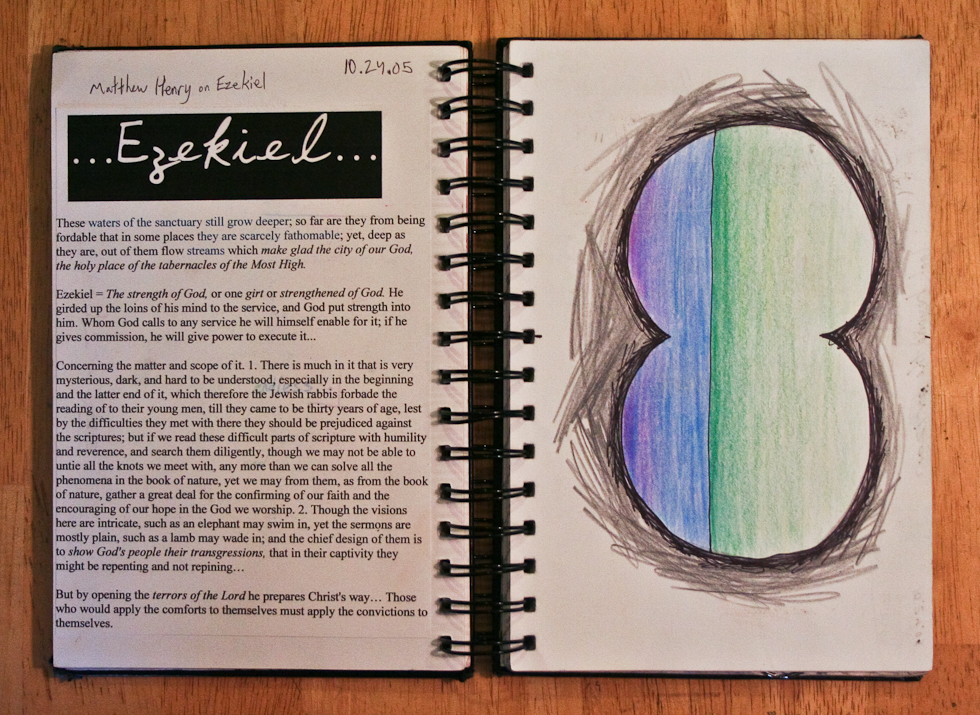 10.24.05
Matthew Henry on Ezekiel
...Ezekiel...
These waters of the sanctuary still grow deeper; so far are they from being
fordable that in some places they are scarcely fathomable; yet, deep as
they are, out of them flow streams which make glad the city of our God,
the holy place of the tabernacles of the Most High.
Ezekiel = The strength of God, or one girt or strengthened of God. He
girded up the loins of his mind to the service, and God put strength into
him. Whom God calls to any service he will himself enable for it; if he
gives commission, he will give power to execute it...
Concerning the matter and scope of it. 1. There is much in it that is very
mysterious, dark, and hard to be understood, especially in the beginning
and the latter end of it, which therefore the Jewish rabbis forbade the
reading of to their young men, till they came to be thirty years of age, lest
by the difficulties they met with there they should be prejudiced against
the scriptures; but if we read these difficult parts of scripture with humility
and reverence, and search them diligently, though we may not be able to
untie all the knots we meet with, any more than we can solve all the
phenomena in the book of nature, yet we may from them, as from the book
of nature, gather a great deal for the confirming of our faith and the
encouraging of our hope in the God we worship. 2. Though the visions
here are intricate, such as an elephant may swim in, yet the sermons are
mostly plain, such as a lamb may wade in; and the chief design of them is
to show God's people their transgressions, that in their captivity they
might be repenting and not repining…
But by opening the terrors of the Lord he prepares Christ's way… Those
who would apply the comforts to themselves must apply the convictions to
themselves.